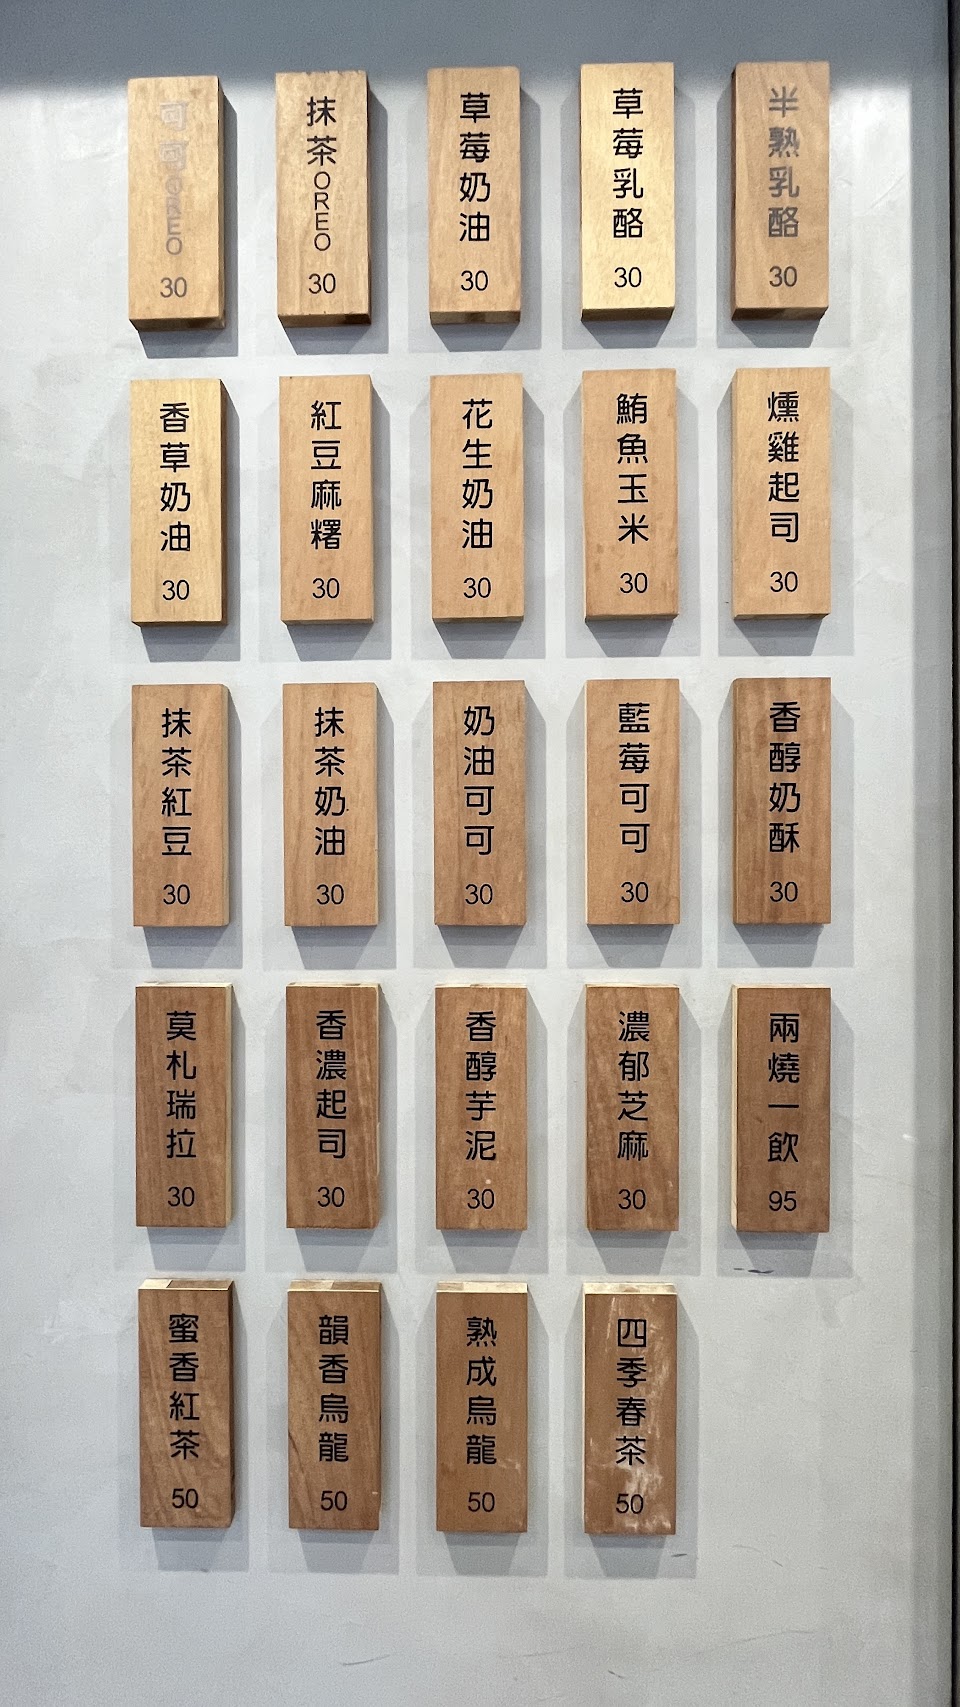 可可OREO
30
抹茶OREO
30
草莓奶油
30
草莓乳酪
30
半熟乳酪
30
香草奶油
30
紅豆麻糬
30
花生奶油
30
鮪魚玉米
30
燻雞起司
30
抹茶紅豆
30
抹茶奶油
30
奶油可可
30
藍莓可可
30
香醇奶酥
30
莫札瑞拉
30
香濃起司
30
香醇芋泥
30
濃郁芝麻
30
兩燒一飲
95
蜜香紅茶
50
韻香烏龍
50
熟成烏龍
50
四季春茶
50